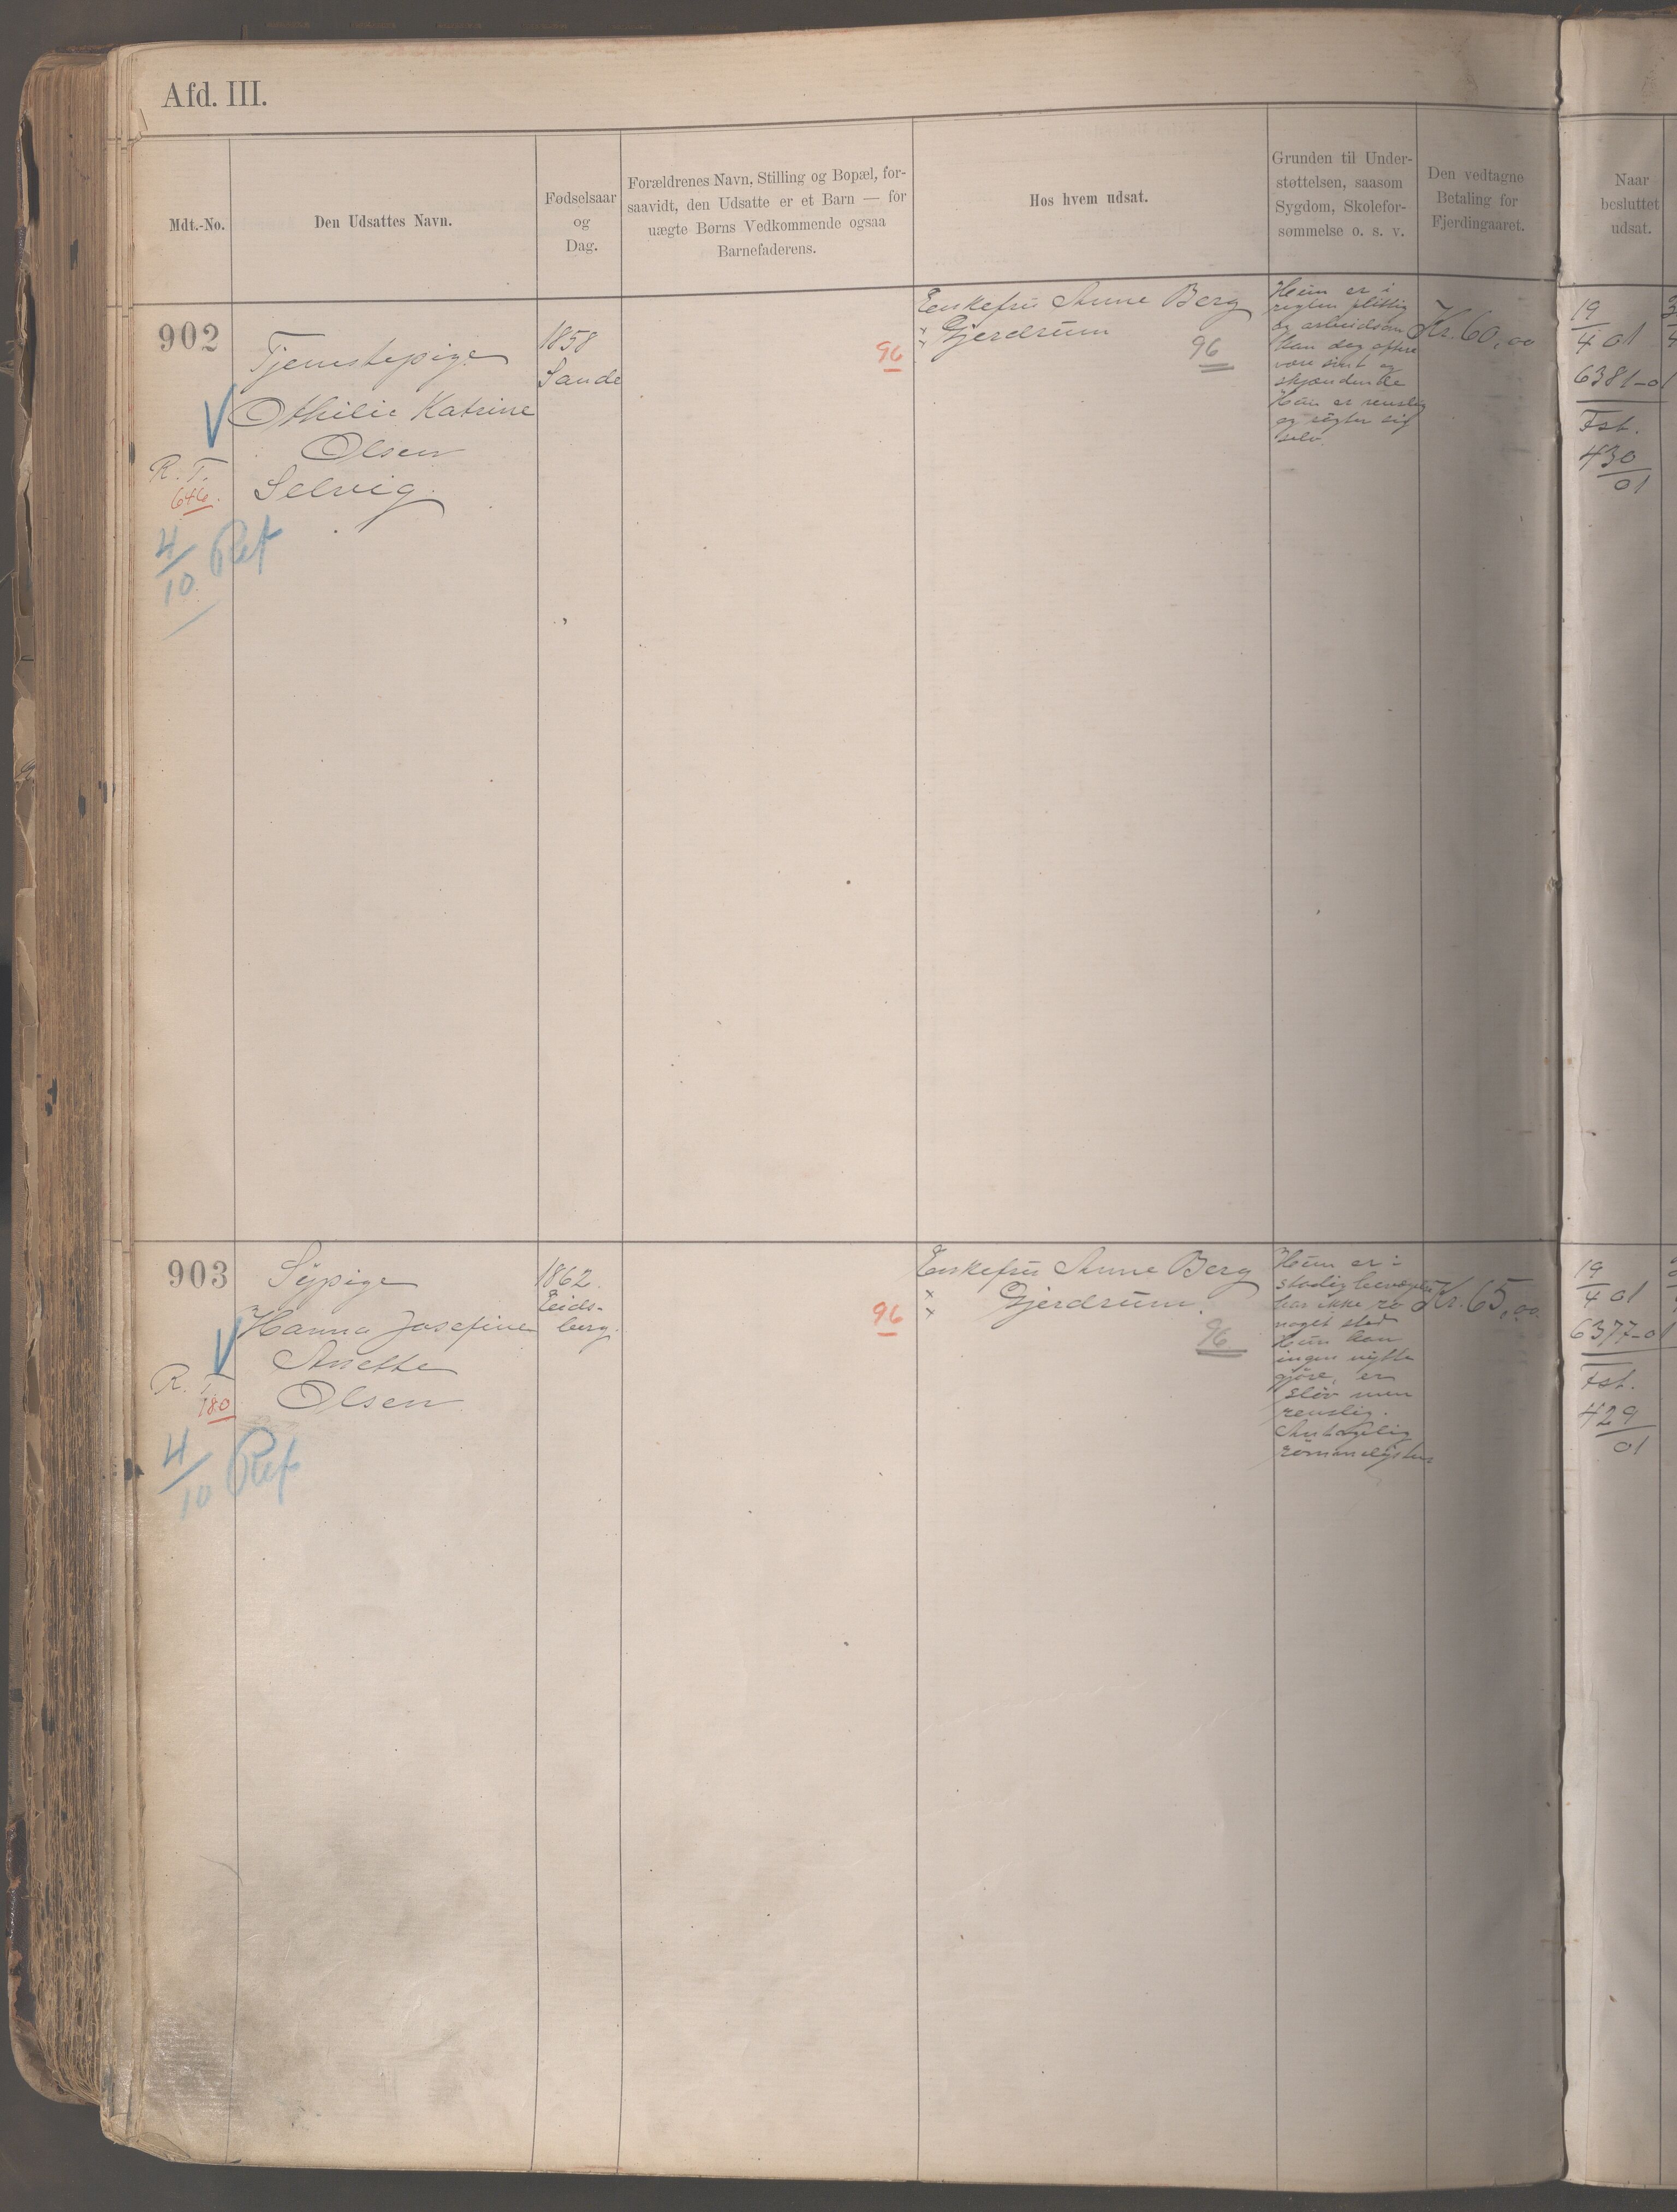 Afd. III.
Mdt.-No.
Den Udsattes Navn.
Fødselsaar
og
Dag.
Forældrenes Navn, Stilling og Bopæl, for-
saavidt, den Udsatte er et Barn — for
uægte Børns Vedkommende ogsaa
Barnefaderens.
Hos hvem udsat.
Grunden til Under-
støttelsen, saasom
Sygdom, Skolefor-
sømmelse o. s. v.
Den vedtagne
Betaling for
Fjerdingaaret.
Naar
besluttet
udsat.
902
Tjenestepige
Othilie Katrine
Olsen
Selvig.
R. T.
646.
4/10 Ref
1858
Sande
96
Enkefru Anne Berg
Gjerdrum
96
Hun er i
reglen flittig
og arbeidsom
kan dog oftere
være sint og
skjændende
Hun er renslig
og røgter sig
selv.
Kr. 60,00
19/4 01
6381-01
Fst.
430/01
903
Sypige
Hanna Josefine
Anette
Olsen
R. T.
180
4/10 Ref
1862.
Eids-
berg.
96
Enkefru Anne Berg
Gjerdrum.
96
Hun er i
stadig bevægelse
har ikke ro
noget sted
Hun kan
ingen nytte
gjøre, er
sløv men
renslig.
Antagelig
Kr. 65,00
19/4 01
6377-01
Fst.
429/01